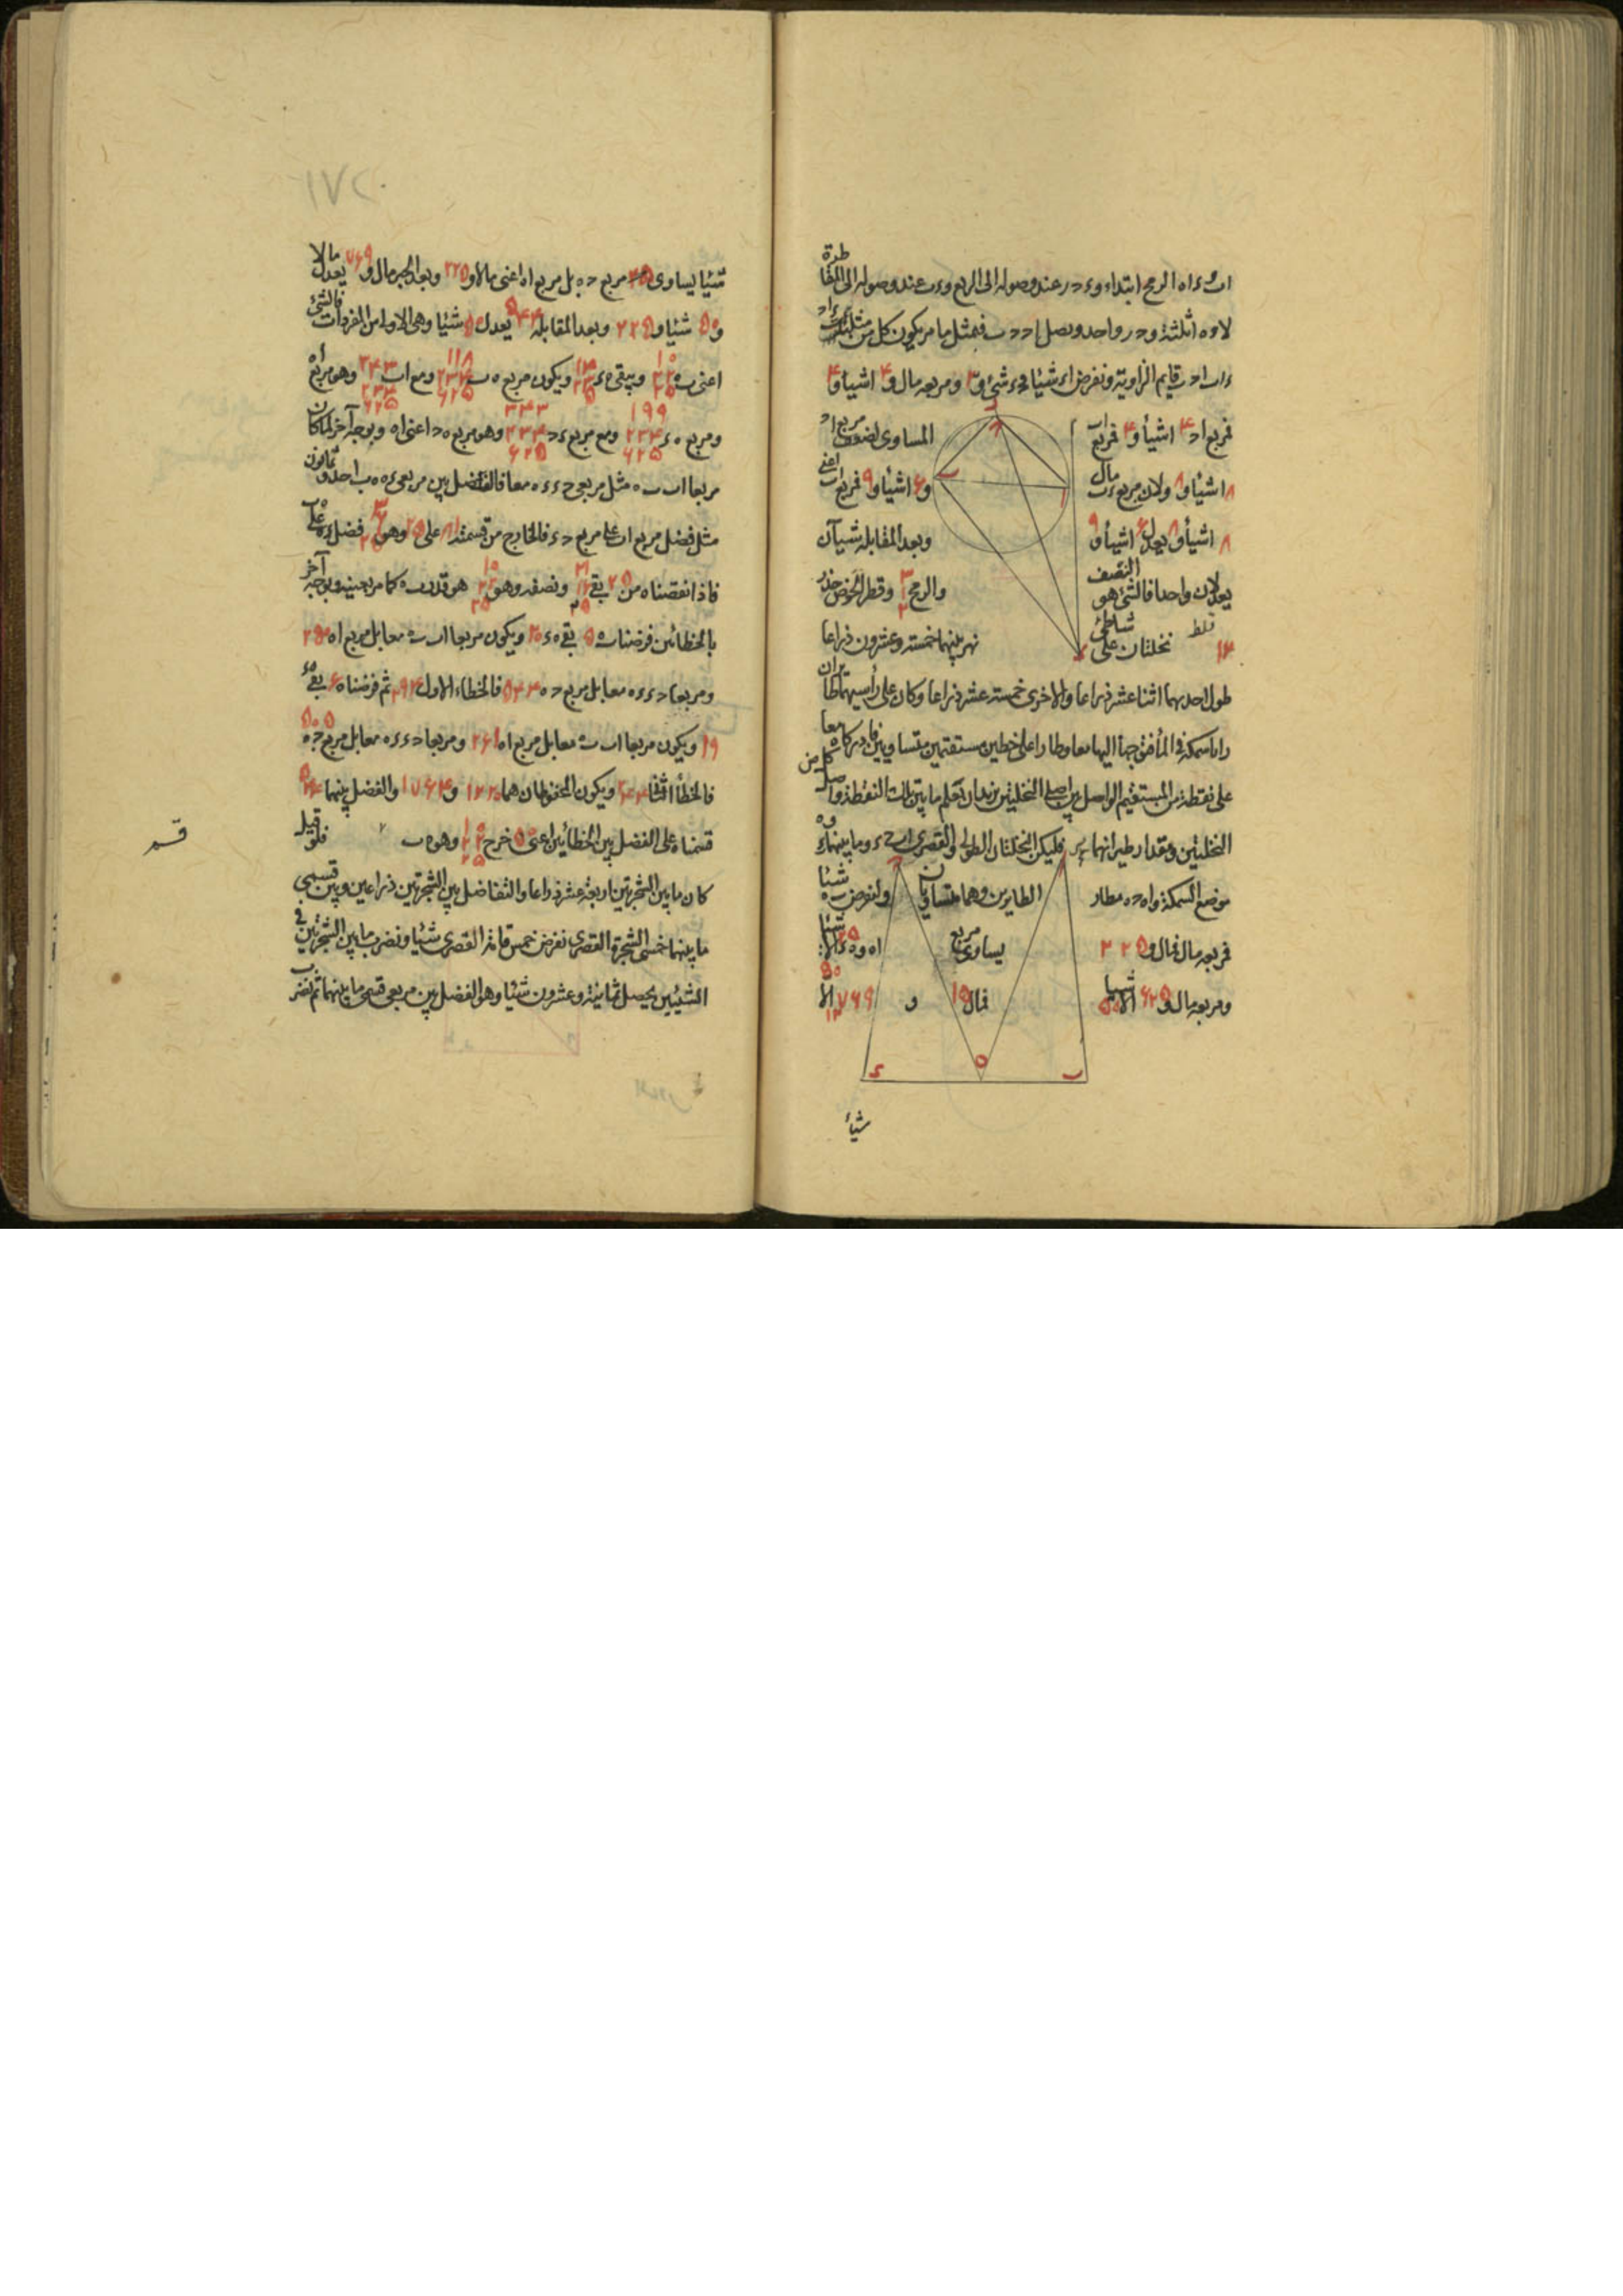 لاوه ثلثة و در واحد ونصل ا د د ب فمثل ما مر يكون كل من مثلثى
ء ا ب ا د ب قايم الزاوية ونفرض اء شيئا فدء شئ و ٣ ومربعه مال و ۴ اشيأ و ۴
فمربع اد ۴ اشيأ و ۴ فمربع
المساوى لضعف مربع اد
٨ اشيأ و ٨ ولان مربع ء ب مال
و ۶ اشيأ و ٩ فمربع اب اعنى
٨ اشيأ و ٨ يعدل ۶ اشيأ و ٩
وبعد المقابلة شيآن
يعدلان واحدا فالشئ هو النصف
والرمح وقطر الحوض جذر
١٢ فقط نخلتان على شاطئ
نهر بينهما خمسة وعشرون ذراعا
طول احديهما اثنا عشر ذراعا والاخرى خمسة عشر ذراعا وكان على رأسيهما طائران
رايا سمكة فى المأ فتوجها اليها معا وطارا على خطين مستقيمين متساويين فادركاه معا
على نقطة من المستقيم الواصل بين اصلى النخلتين نريد ان نعلم ما بين تلك النقطة واصل كل من
النخلتين ومقدار طيرانهما فليكن النخلتان الطولى والقصرى اب ح ء وما بينهما ء ب و ه
موضع السمكة و ا ه ح ه مطار
الطايرين وهما متساويان
ولنفرض ب ه شيئا
فمربعه مال فمال و ٢٢٥
يساوى مربع
ا ه و ه ء ٢٥ الا شيئا
ومربعه مال و ۶٢٥ الا ٥٠ شيئا
فمال
و
٧۶٩ الا ٥٠
شيأ
١٧٢
شيئا يساوى مربع ح ه بل مربع ا ه اعنى مالا و ٢٢٥ وبعد الجبر مال و ٧۶٩ يعدل مالا
و ٥٠ شيئا و ٢٢٥ وبعد المقابلة ٥۴۴ يعدل ٥٠ شيئا وهى الاولى من المفردات فالشئ
اعنى ب ه ويبقى ه ء ويكون مربع ه ب ومع اب وهو مربع ا ه
ومربع ه ء ومع مربع ء ح وهو مربع ه ح اعنى ا ه وبوجه آخر لما كان
مربعا ا ب ب ه مثل مربعى ح ء ء ه معا فالفضل بين مربعى ء ه ه ب احد وثمانون
مثل فضل مربع اب على مربع ح ء فالخارج من قسمة ٨١ على ٢٥ وهو فضل ء ه على ه ب
فاذا نقصناه من ٢٥ بقى ونصفه وهو هو قدر ب ه كما مر بعينه وبوجه آخر
بالخطائين فرضنا ب ه ٥ بقى ه ء ٢٠ ويكون مربعا ا ب ب ه معا بل مربع ا ه ٢٥٠
ومربعا ح ء ء ه معا بل مربع ح ه ٥۴۴ فالخطاء الاول ٢٩۴ ثم فرضناه ۶ بقى ه ء
١٩ ويكون مربعا ا ب ب ه معا بل مربع ا ه ٢۶١ ومربعا ح ء ء ه معا بل مربع ح ه ٥٠٥
فالخطأ الثانى ٢۴۴ ويكون المحفوظان هما ١٢٢٠ و ١٧۶۴ والفضل بينهما ٥۴۴
قسمناه على الفضل بين الخطائين اعنى ٥٠ خرج وهو ه ب فلو قيل
كان ما بين الشجرتين اربعة عشر ذراعا والتفاضل بين الشجرتين ذراعين وبين قسمى
ما بينهما خمسى الشجرة القصرى نفرض خمس قامة القصرى شيئا ونضرب ما بين الشجرتين فى
الشيئين يحصل ثمانية وعشرون شيئا وهو الفضل بين مربعى قسمى ما بينهما ثم نضرب